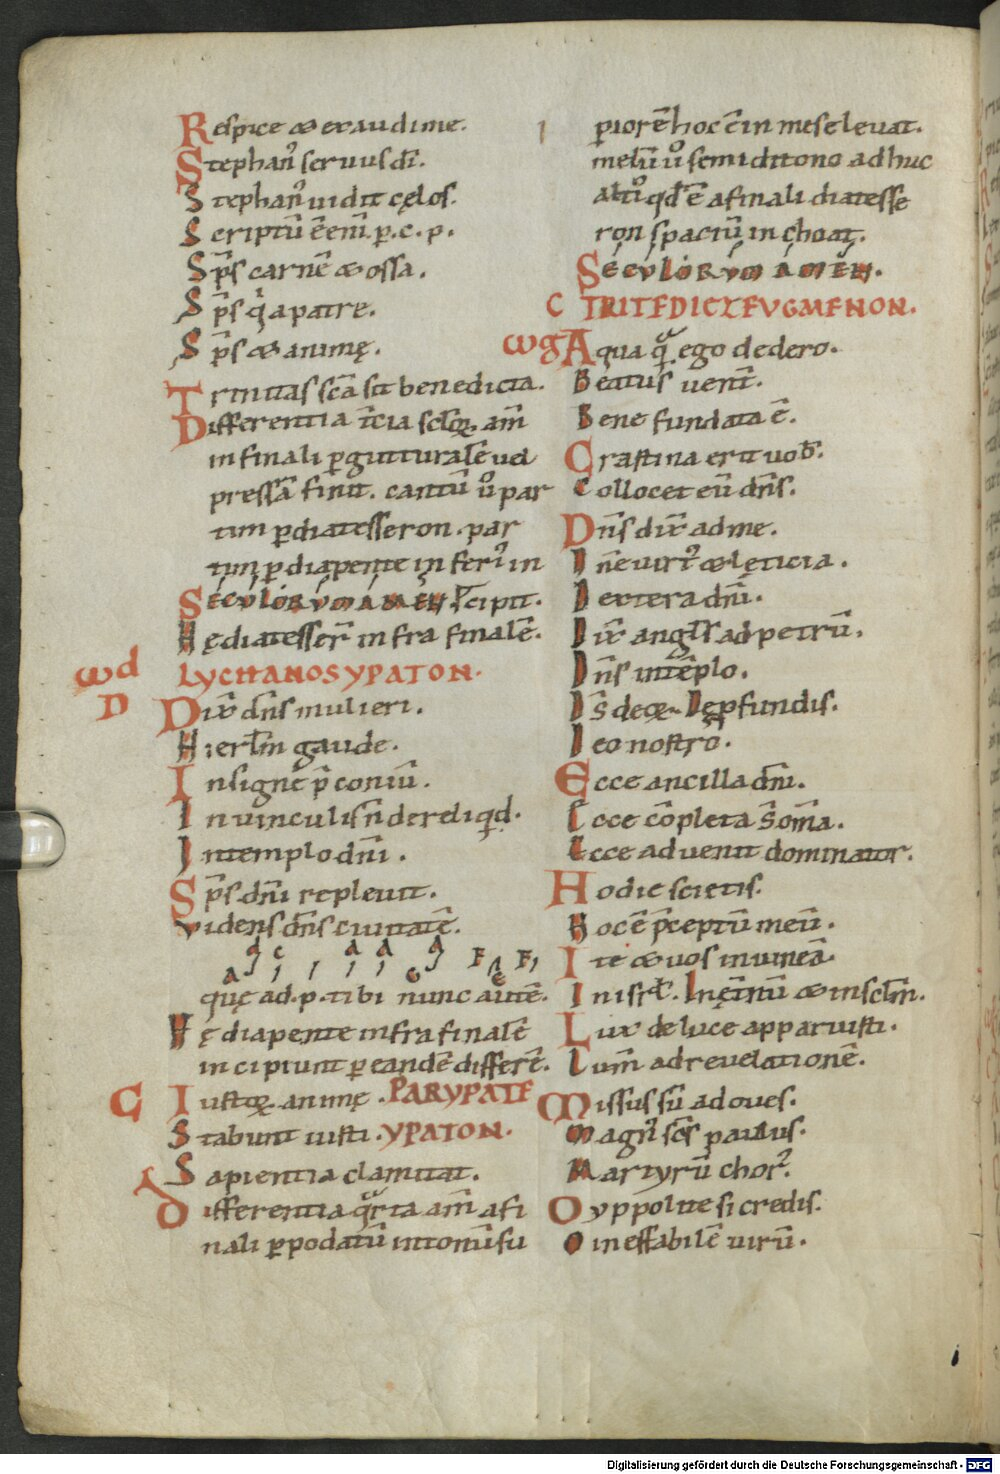 Respice & exaudi me.
Stephanꝰ seruus dī.
Stephanꝰ uidit cęlos.
Scriptū ē enī. p. c. p.
Sp̄s carnē & ossa.
Sp̄s qͥ a patre.
Sp̄s & animę.
Trinitas scā sit benedicta.
Differentia t̄cia sclōꝝ am̄
in finali ꝑ gutturalē uel
pressā finit. cantū uͦ par
tim ꝑ diatesseron. par
tim ꝑ diapente in ferꝰ in
Seculorum amen. cipit.
Hę diatesser̄ infra finalē.
wd LYCHANOSYPATON.
D Dix̄ dn̄s mulieri.
Hierl̄m gaude.
Insignē p̄coniū.
In uinculis n̄ dereliqͥd.
In templo dn̄i.
Sp̄s dn̄i repleuit.
Videns dn̄s ciuitatē.
quę ad. p. tibi nunc autē.
Hę diapente infra finalē
incipiunt ꝑ eandē differē.
C Iustoꝝ animę. PARYPATE
Stabunt iusti. YPATON.
Sapientia clamitat.
Differentia qͣrta am̄ a fi
nali ꝑ podatū in tonū su
piorē hoc ē in mese leuat.
melū uͦ semiditono adhuc
altiꝰ qd̄ ē a finali diatesse
ron spaciū inchoat.
Seculorum amen.
C TRITEDIEZEVGMENON.
wg Aqua quͣ ego dedero.
Beatus uenī.
Bene fundata ē.
Crastina erit uob̄.
Collocet eū dn̄s.
Dn̄s dix̄ ad me.
Dn̄e uirtꝰ & leticia.
Dextera dn̄i.
Dix̄ angl̄s ad petrū.
Dn̄s in tēplo.
Ds̄ deoꝝ. De ꝓfundis.
Deo nostro.
Ecce ancilla dn̄i.
Ecce cōpleta s̄ om̄a.
Ecce aduenit dominator.
Hodie scietis.
Hoc ē p̄ceptū meū.
Ite & uos in uineā.
In isrl̄. In ętn̄ū & in scl̄m.
Lux de luce apparuisti.
Lum̄ ad reuelationē.
Missus sū ad oues.
Magnꝰ scs̄ paulus.
Martyrū chorꝰ.
O yppolite si credis.
O ineffabilē uirū.
Digitalisierung gefördert durch die Deutsche Forschungsgemeinschaft - DFG